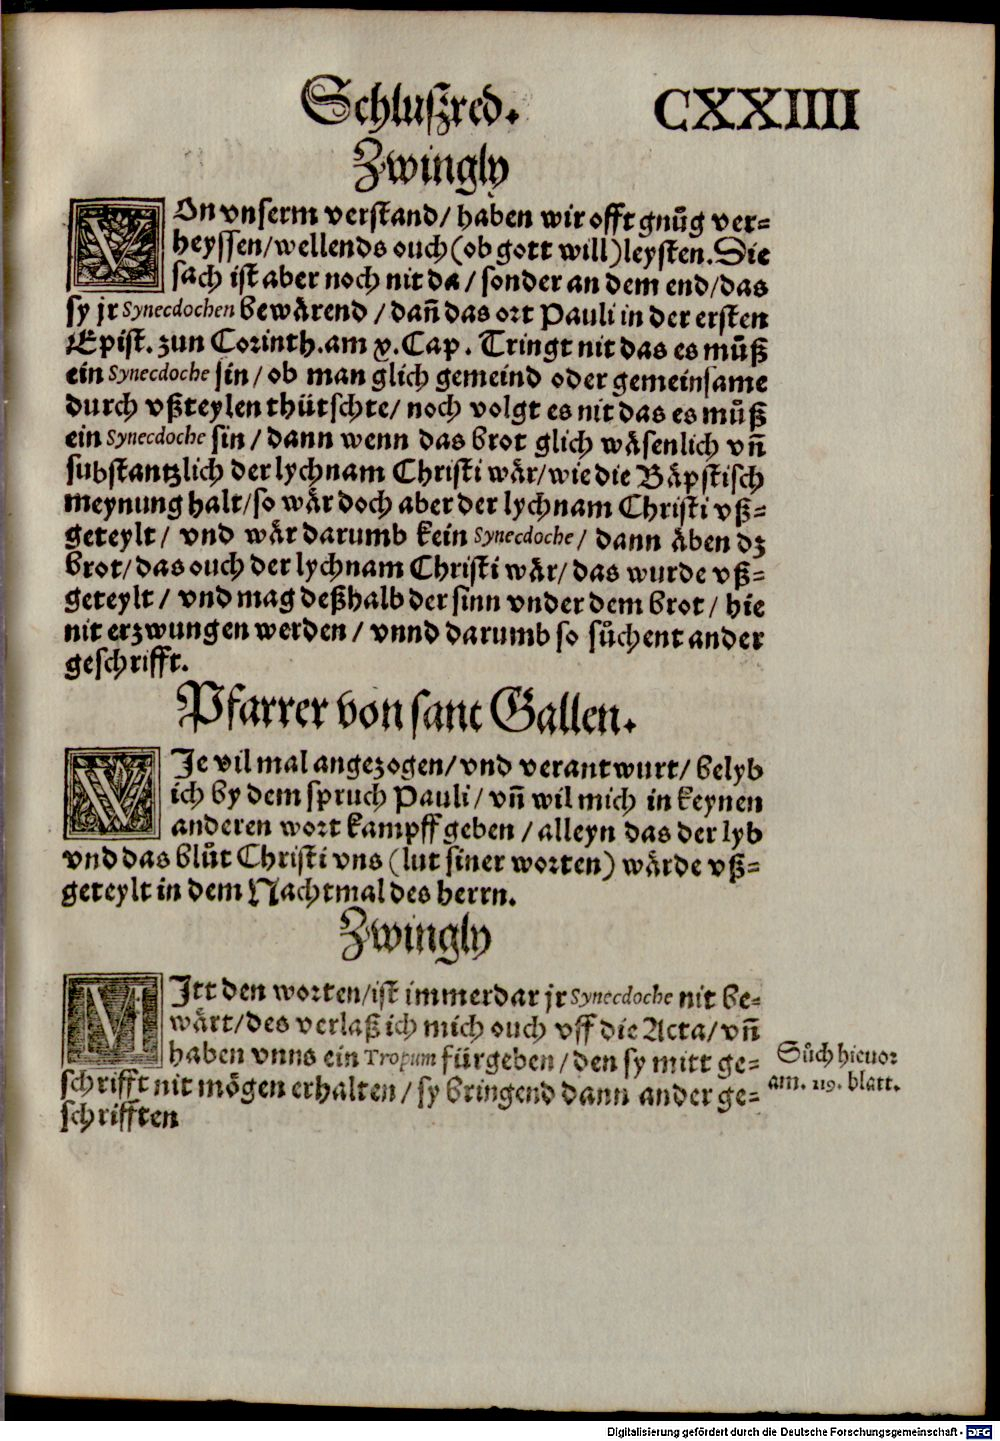 Schluſzred. CXXIIII
Zwingly
VOn vnserm verstand/ haben wir offt gnuͦg ver=
heyssen/wellends ouch (ob gott will) leysten. Die
sach ist aber noch nit da / sonder an dem end/das
sy jr Synecdochen bewaͤrend / dañ das ort Pauli in der ersten
Epist. zun Corinth. am x. Cap. Tringt nit das es muͦß
ein Synecdoche sin/ ob man glich gemeind oder gemeinsame
durch vßteylen thütschte/ noch volgt es nit das es muͦß
ein Synecdoche sin / dann wenn das brot glich waͤsenlich vñ
substantzlich der lychnam Christi waͤr/wie die Baͤpstisch
meynung halt/so waͤr doch aber der lychnam Christi vß=
geteylt / vnd waͤr darumb kein Synecdoche / dann aͤben dz
brot/das ouch der lychnam Christi waͤr/ das wurde vß=
geteylt / vnd mag deßhalb der sinn vnder dem brot / hie
nit erzwungen werden / vnnd darumb so suͦchent ander
geschrifft.
Pfarrer von sant Gallen.
WJe vil mal angezogen/ vnd verantwurt/ belyb
ich by dem spruch Pauli/ vñ wil mich in keynen
anderen wort kampff geben / alleyn das der lyb
vnd das bluͦt Christi vns (lut siner worten) waͤrde vß=
geteylt in dem Nachtmal des herrn.
Zwingly
MJtt den worten/ist immerdar jr Synecdoche nit be=
waͤrt/des verlaß ich mich ouch vff die Acta/ vñ
haben vnns ein Tropum fürgeben / den sy mitt ge=
schrifft nit moͤgen erhalten / sy bringend dann ander ge=
schrifften
Suͦch hieuor
am. 119. blatt.
Digitalisierung gefördert durch die Deutsche Forschungsgemeinschaft - DFG